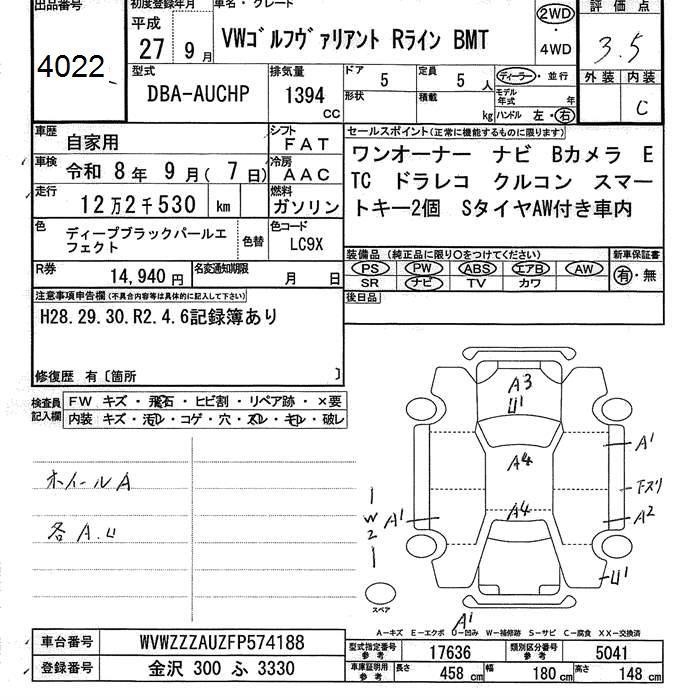 出品番号
4022
初度登録年月
平成
27 9月
車名・グレード
VWゴルフヴァリアント Rライン BMT
2WD
・
4WD
評価点
3.5
外装 内装
C
型式
DBA-AUCHP
排気量
1394
CC
ドア
5
定員
5 人
形状
積載
kg
ディーラー・並行
モデル年式 年
ハンドル 左・右
車歴
自家用
シフト
FAT
車検
令和 8年 9月 ( 7日)
冷房
AAC
走行
12万2千530 km
燃料
ガソリン
色
ディープブラックパールエフェクト
色替
色コード
LC9X
R券
14,940円
名変通知期限
月 日
セールスポイント(正常に機能するものに限ります)
ワンオーナー ナビ Bカメラ E
TC ドラレコ クルコン スマー
トキー2個 SタイヤAW付き車内
装備品 (純正品に限り○をつけてください)
新車保証書
PS PW ABS エアB AW
SR ナビ TV カワ
有・無
後日品
注意事項申告欄(不具合内容等は具体的に記入して下さい)
H28.29.30.R2.4.6記録簿あり
修復歴 有〔箇所 〕
検査員
記入欄
FW キズ・飛石・ヒビ割・リペア跡・×要
内装 キズ・汚レ・コゲ・穴・スレ・モレ・破レ
ホイールA
各A.U
A3
U1
A4
A4
A1
下スリ
A2
U1
A1
A1
W2
スペア
A-キズ E-エクボ U-凹み W-補修跡 S-サビ C-腐食 XX-交換済
車台番号
WVWZZZAUZFP574188
登録番号
金沢 300 ふ 3330
型式指定番号
参考
17636
類別区分番号
参考
5041
車庫証明用
参考
長さ
458 cm
幅
180 cm
高さ
148 cm